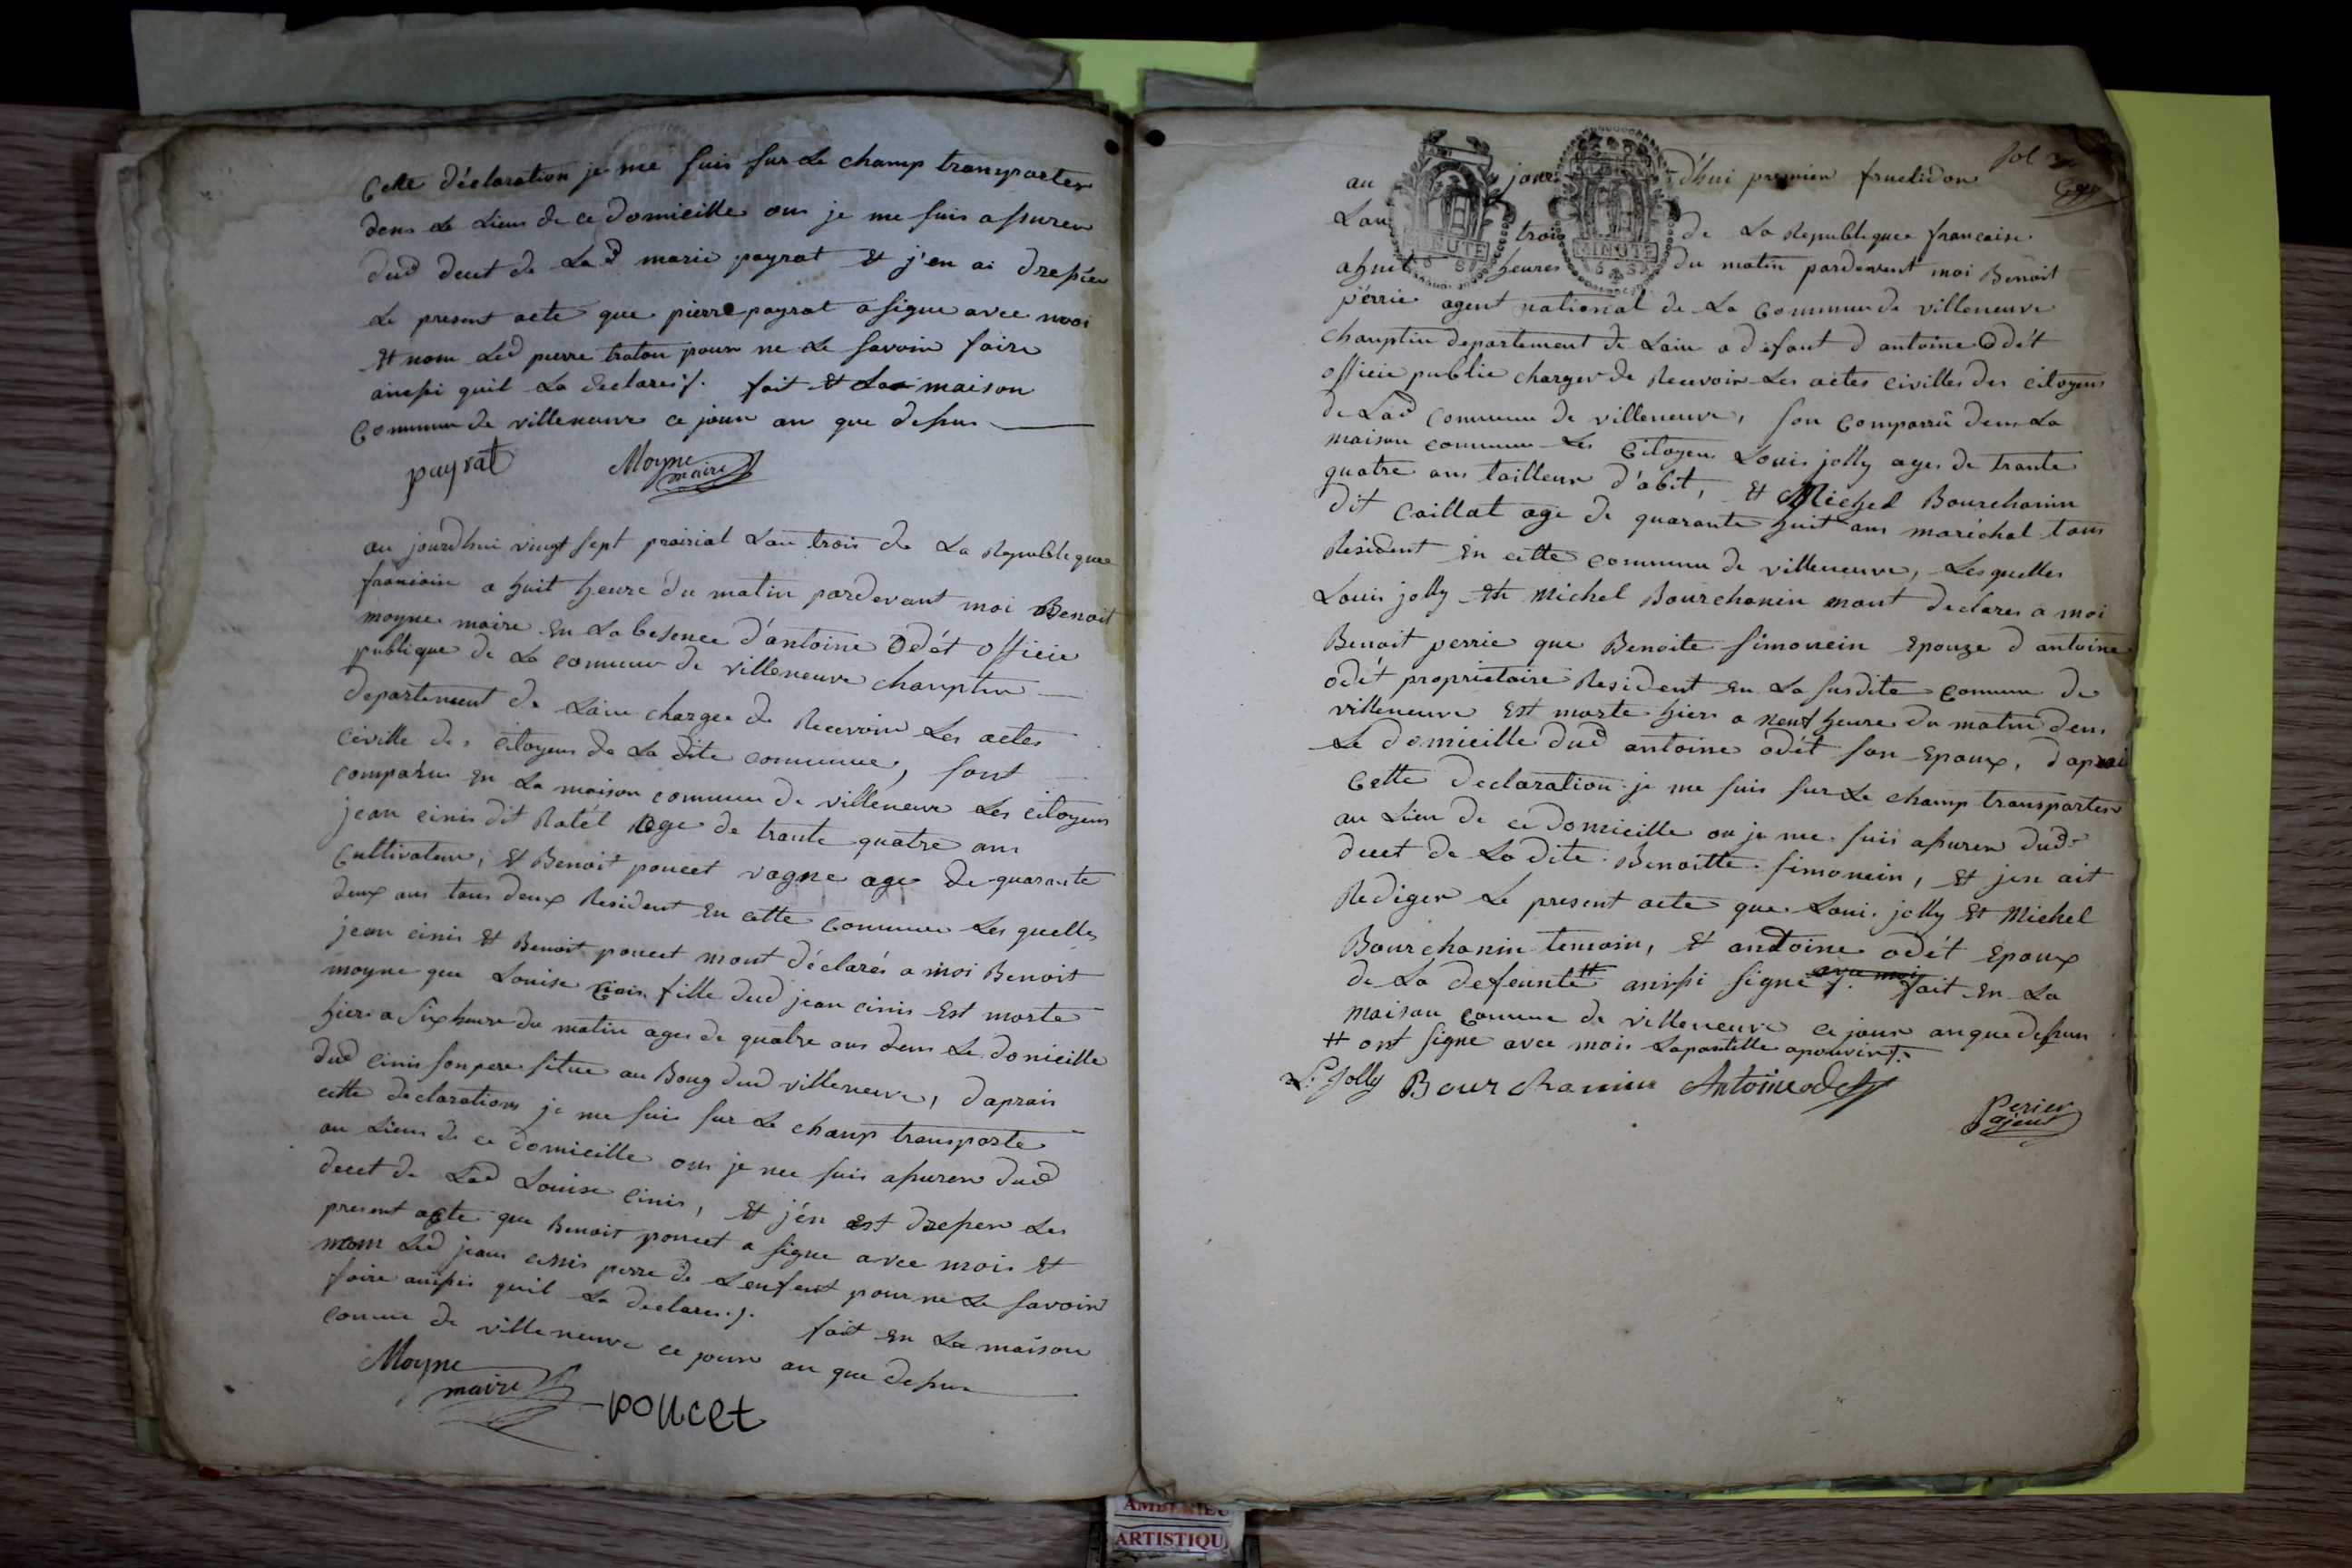 Cette déclaration je me suis sur le champ transporter
dens le Lieus de ce domicille ous je me suis assurer
dud decet de Lad marie payrat et j'en ai dresser
Le present acte que pierre payrat a signe avec moi
et nom Led pierre traton pour ne le savoir faire
ainssi quil la declares ./. fait et La maison
Commune de villeneuve ce jour an que dessus
payrat Moyne
maire
au jourdhui vingt sept prairial Lan trois de La Republique
francoise a huit heure du matin pardevant moi Benoit
moyne maire en La besence d'antoine Odét Officie
publique de La commune de villeneuve champtin
departement de Lain charge de Recevoir Les actes
civille des citoyens de La dite commune, sont
comparu en La maison commune de villeneuve Les citoyens
jean cinis dit Ratél age de trante quatre ans
Cultivateur, et Benoit poncet vagne age de quarante
deux ans tous deux Resident en cette commune Les quelles
jean cinis et Benoit poncet mont déclarés a moi Benoit
moyne que Louise Cinis fille dud jean cinis est morte
hier a six heure du matin ages de quatre ans dens Le domicille
dud cinis son pere situe au Boug dud villeneuve, daprais
cette declarations je me suis sur Le champ transporte
au Lieus de ce domicille ous je me suis assurer dud
decet de Lad Louise Cinis, et jén est dresser Les
present acte que Benoit poncet a signe avec mois et
mom Led jeans cinis perre de Lenfent pour ne Le savoir
faire ainssi quil La declares ./. fait en La maison
comme de villeneuve ce jour an que dessus
Moyne
maire poncet
fol
au jour d'hui premier fructidor
Lan trois de La Republique francaise
a huit heures du matin pardevent moi Benoit
périe agent national de La Commune de villeneuve
champtin departement de Lain a défaut d antoine Odét
officie public charger de Recevoir Les actes civilles des citoyens
de Lad commune de villeneuve, son Comparru dens La
maison commune Les Citoyens Louis jolly ages de trante
quatre ans tailleur d'abit, et Michel Bourchanin
dit Caillat age de quarante huit ans maréchal tous
Resident en cette commune de villeneuve, Lesquelles
Louis jolly et Michel Bourchanin mont declares a moi
Benoit perrie que Benoite simonein Epouze d antoine
odét proprietaire Resident en La susdite comune de
villeneuve Est morte hier a neuf heure du matin dens
Le domicille dud antoine odét son Epoux, daprai
Cette declaration je me suis sur Le champ transporter
au Lieu de ce domicille ou je me suis assurer dud
decet de La dite Benoitte simonein, et jen ait
Rediger Le present acte que Loui. jolly et Michel
Bourchanin temoin, et andtoine odét Epoux
de La defeunte # ainssi signe ./. avec moi fait en La
maison comune de villeneuve ce jour an que dessus
# ont signe avec mois Lapostille apouvint ./.
L: Jolly Bourchanin Antoine odet
Perier
ajent
MINUTE
MINUTE
ARTISTIQU